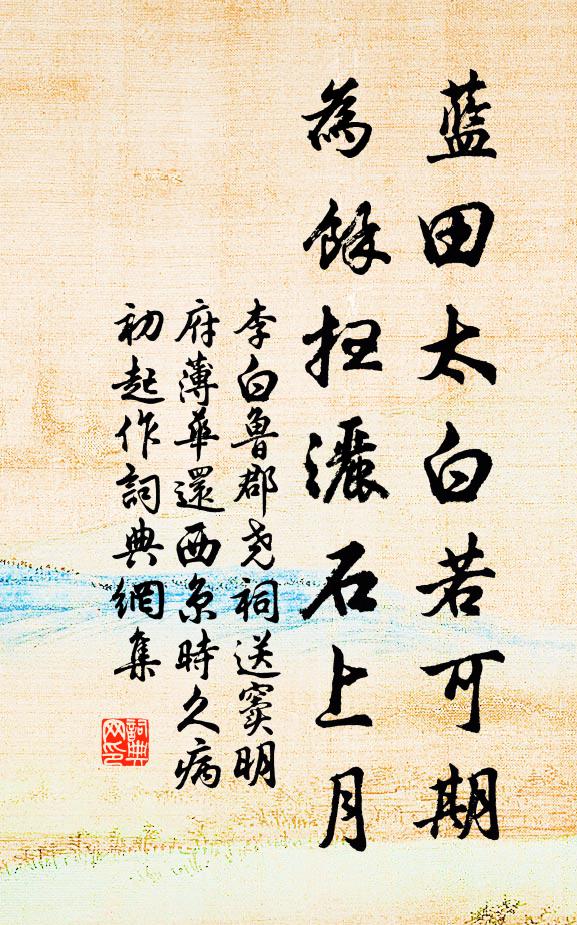 藍田太白若可期
為餘扫灑石上月
李白魯郡尧祠送窦明
府薄華還西京時久病
初起作詞典網集
詞典
网印